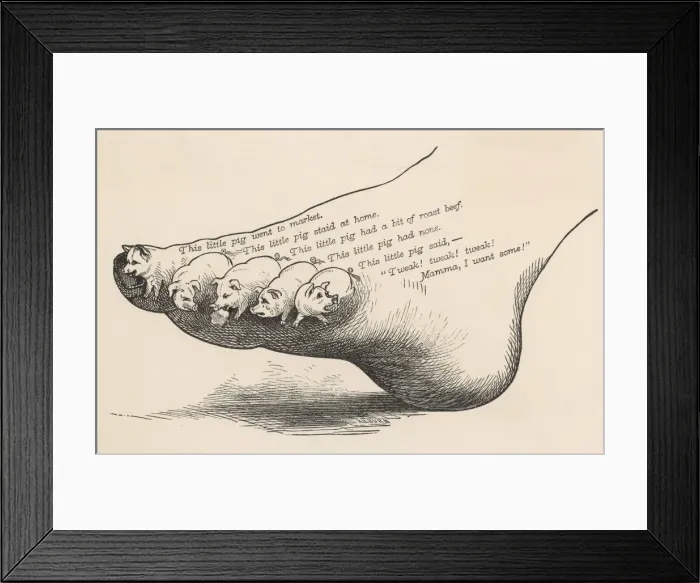 This little pig went to market.
This little pig staid at home.
This little pig had a bit of roast beef.
This little pig had none.
This little pig said,—
"Tweak! tweak! tweak!
Mamma, I want some!"